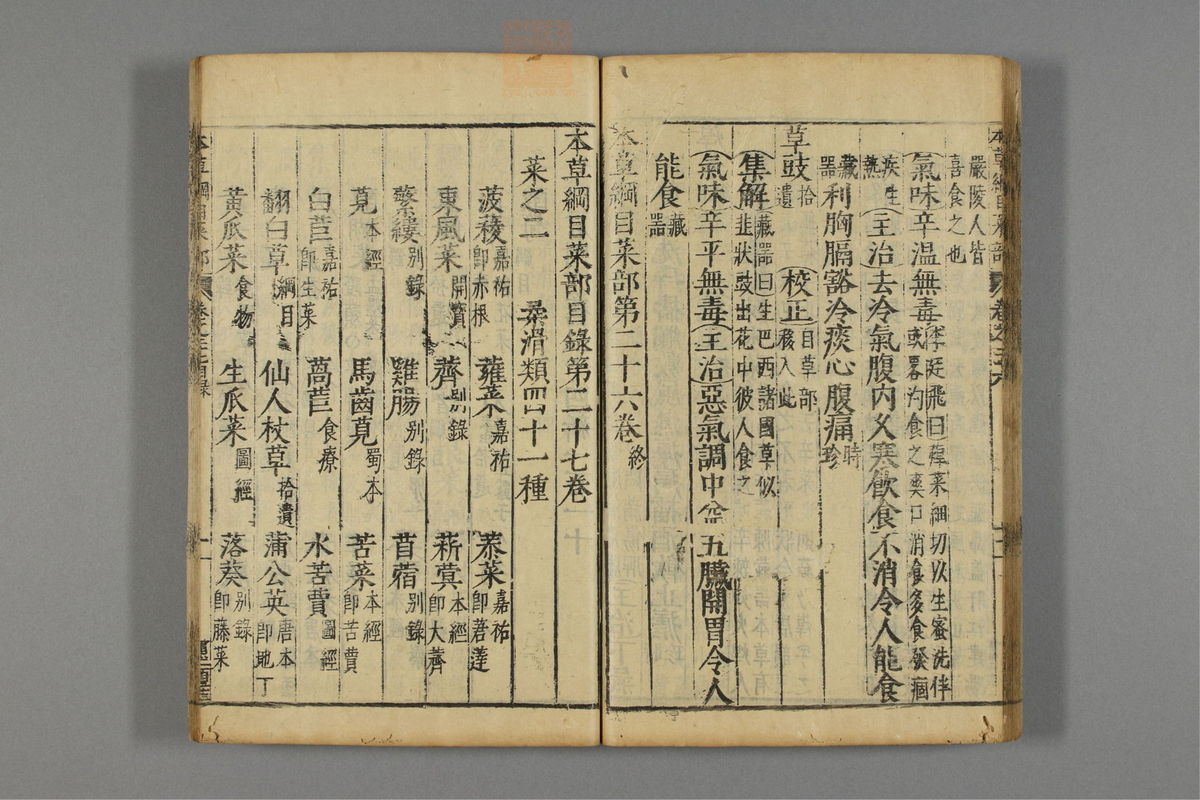 嚴陵人皆喜食之也
氣味辛溫無毒李廷飛曰蔊菜細切以生蜜洗伴或畧汋食之爽口消食多食發痼
疾生熱主治去冷氣腹內久寒飲食不消令人能食
藏器利胸膈豁冷痰心腹痛時珍
草豉拾遺校正自草部移入此
集解藏器曰生巴西諸國草似韭狀豉出花中彼人食之
氣味辛平無毒主治惡氣調中益五臟開胃令人
能食藏器
本草綱目菜部第二十六卷終
本草綱目菜部目錄第二十七卷
菜之二 柔滑類四十一種
菠薐嘉祐即赤根 蕹菜嘉祐 菾菜嘉祐即莙薘
東風菜開寶 薺別錄 菥蓂本經即大薺
蘩縷別錄 雞腸別錄 苜蓿別錄
莧本經 馬齒莧蜀本 苦菜本經即苦蕒
白苣嘉祐即生菜 萵苣食療 水苦蕒圖經
翻白草綱目 仙人杖草拾遺 蒲公英唐本即地丁
黃瓜菜食物 生瓜菜圖經 落葵別錄即藤菜